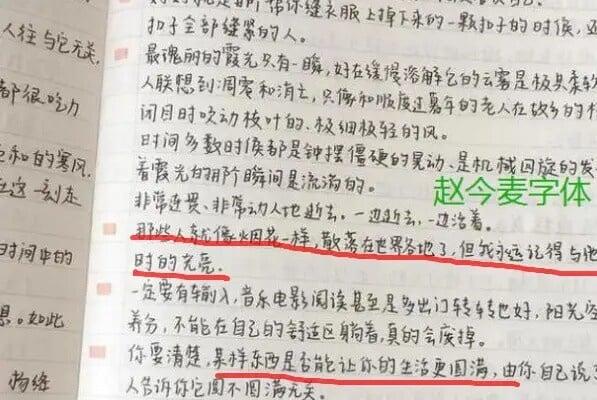 人往与它无关,
都很吃力
和的寒风
在这一刻走
时间中的
息。如此
扣子全部缝紧的人。
最瑰丽的霞光只有一瞬,好在缓慢溶解它的云雾是极具柔软
人联想到凋零和消亡,只像和顺度过暮年的老人在故乡的
闭目时吹动枝叶的、极细极轻的风。
时间多数时候都是钟摆僵硬的晃动、是机械回旋的发
着霞光的那阶瞬间是流淌的。
赵今麦字体
非常连贯、非常动人地逝去。一边逝去,一边活着。
那些人就像烟花一样,散落在世界各地了,但我永远记得与他
时的光亮。
一定要有输入,音乐电影阅读甚至是多出门转转也好,阳光空
养分,不能在自己的舒适区躺着,真的会废掉。
你要清楚,某样东西是否能让你的生活更圆满,由你自己说了
人告诉你它圆不圆满无关。